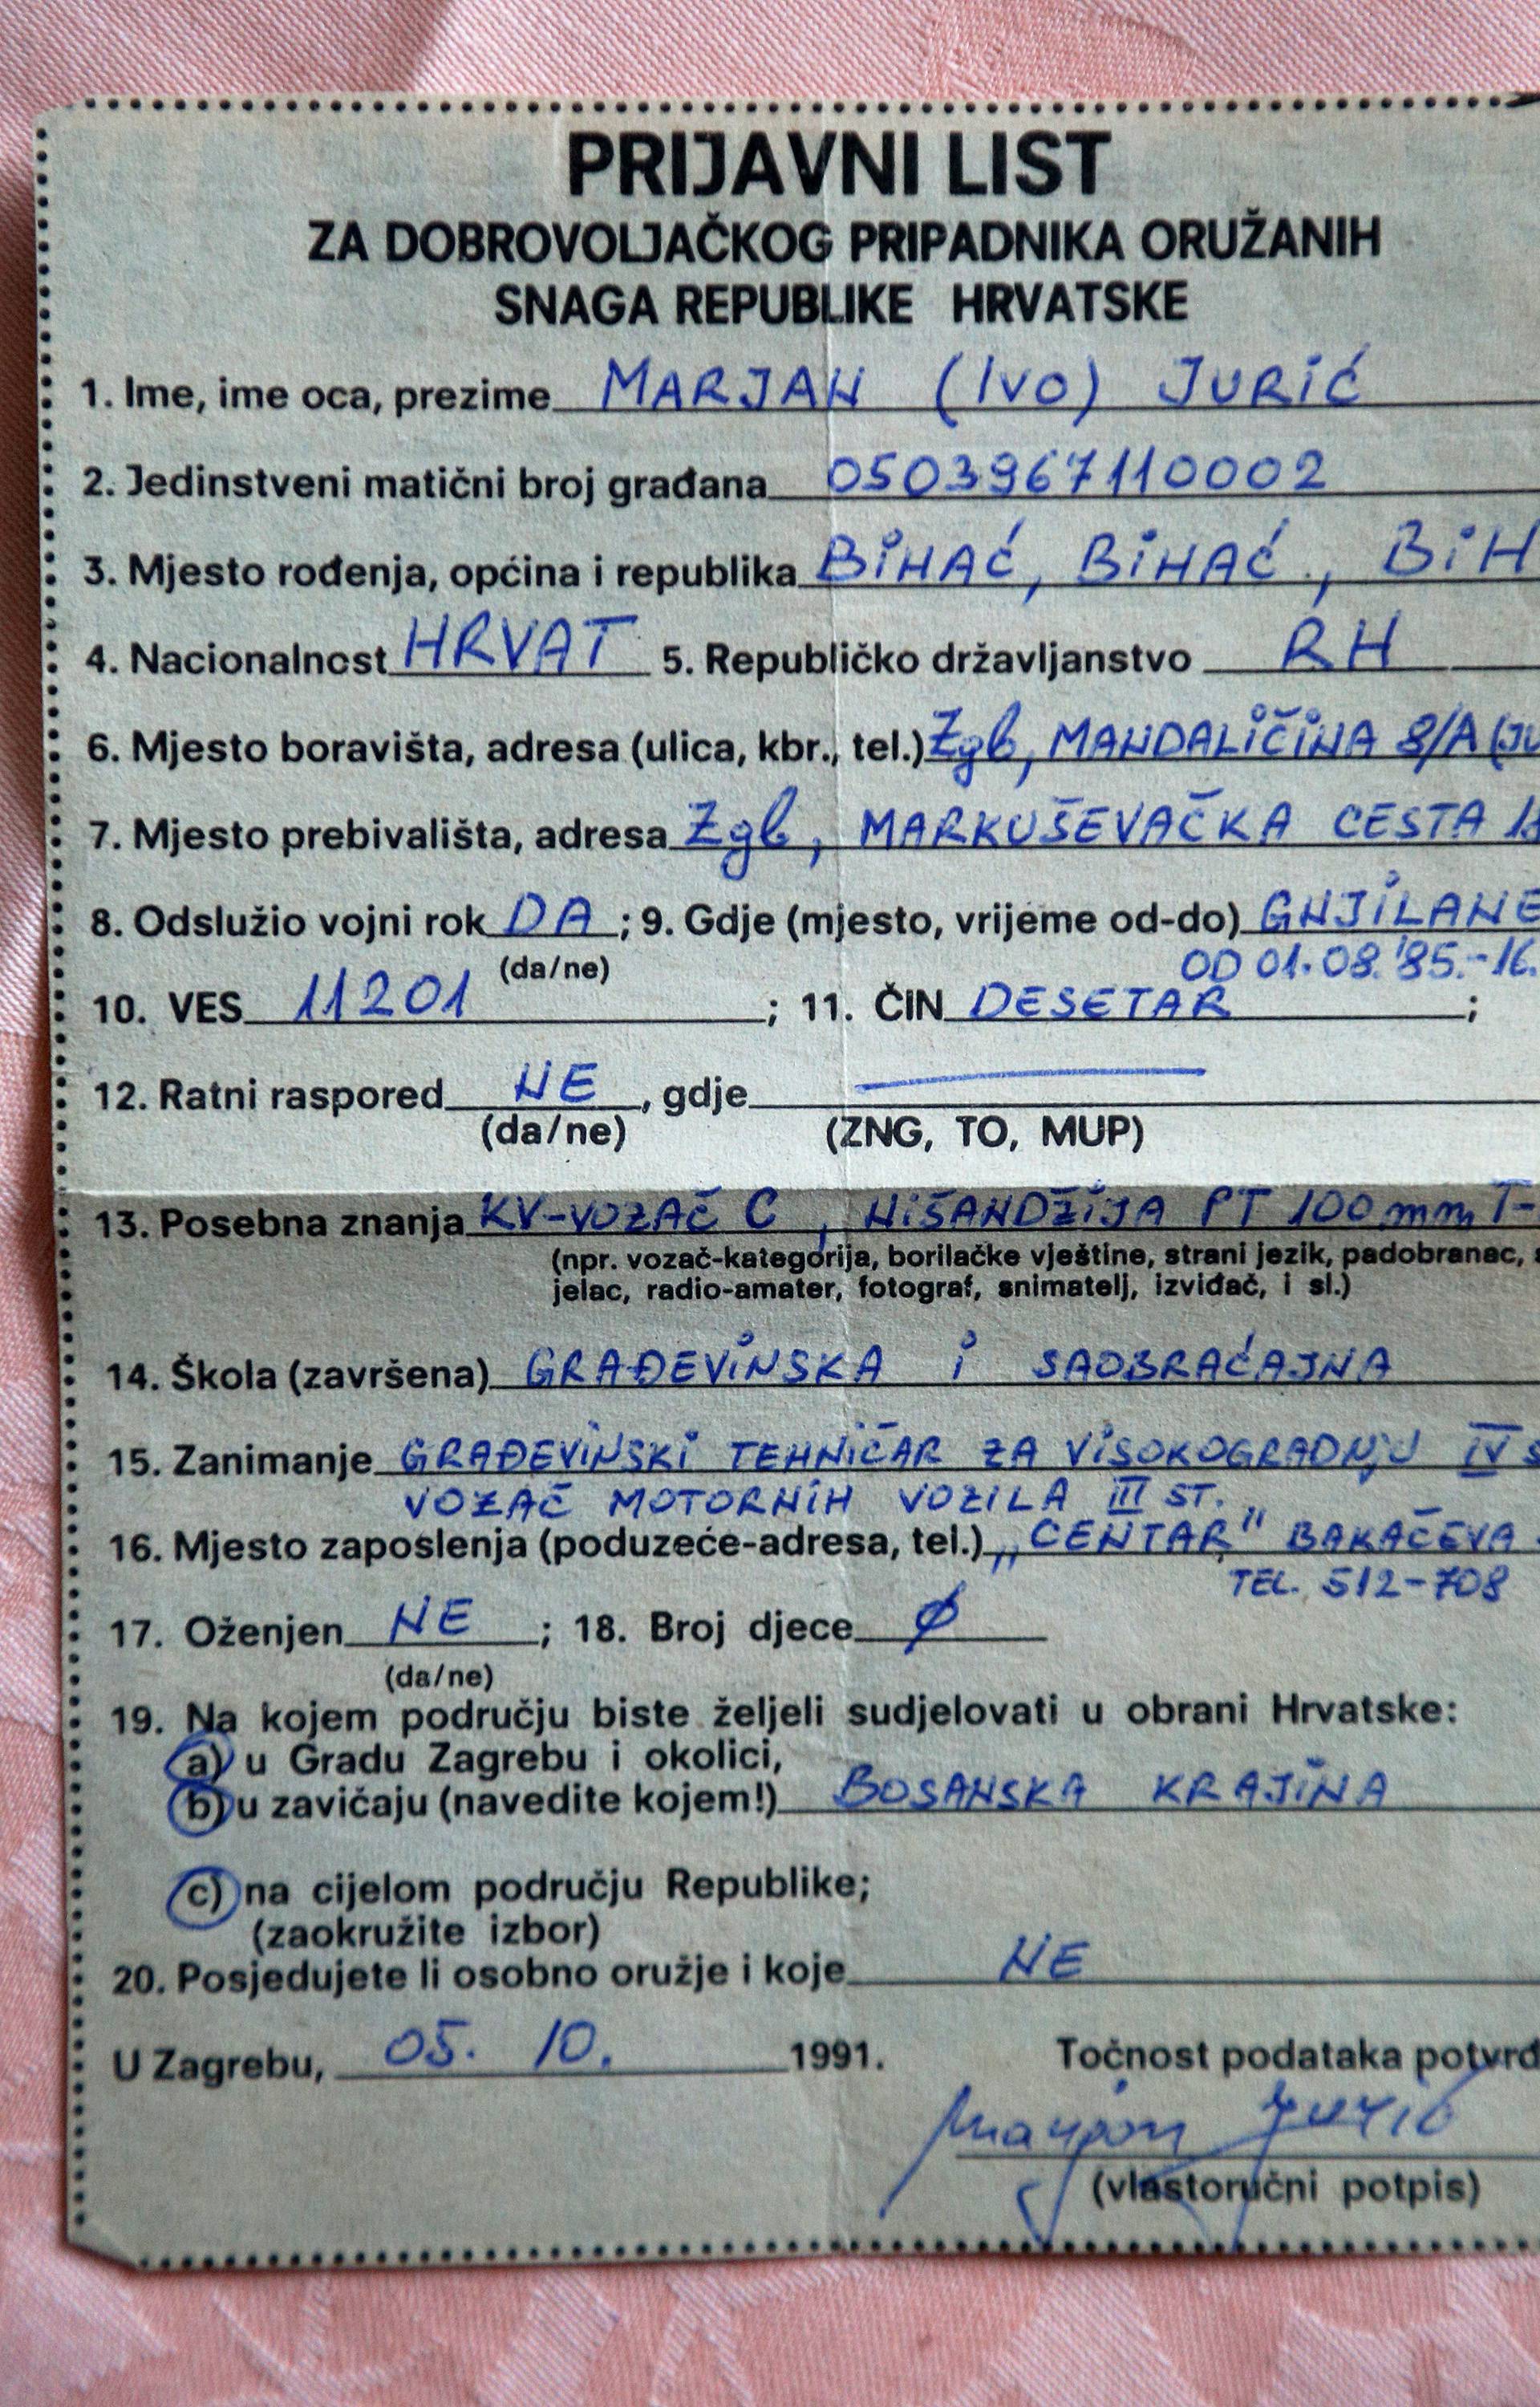 PRIJAVNI LIST
ZA DOBROVOLJAČKOG PRIPADNIKA ORUŽANIH
SNAGA REPUBLIKE HRVATSKE
1. Ime, ime oca, prezime MARJAN (IVO) JURIĆ
2. Jedinstveni matični broj građana 0503967110002
3. Mjesto rođenja, općina i republika BIHAĆ, BIHAĆ, BIH
4. Nacionalnost HRVAT 5. Republičko državljanstvo RH
6. Mjesto boravišta, adresa (ulica, kbr., tel.) Zgb, MANDALIČINA 8/A
7. Mjesto prebivališta, adresa Zgb, MARKUŠEVAČKA CESTA
8. Odslužio vojni rok DA ; 9. Gdje (mjesto, vrijeme od-do) GNJILANE
(da/ne) OD 01.08.'85.-16.
10. VES 11201 ; 11. ČIN DESETAR ;
12. Ratni raspored NE , gdje
(da/ne) (ZNG, TO, MUP)
13. Posebna znanja KV-VOZAČ C, NIŠANDŽIJA PT 100 mm T-
(npr. vozač-kategorija, borilačke vještine, strani jezik, padobranac,
jelac, radio-amater, fotograf, snimatelj, izviđač, i sl.)
14. Škola (završena) GRAĐEVINSKA I SAOBRAĆAJNA
15. Zanimanje GRAĐEVINSKI TEHNIČAR ZA VISOKOGRADNJU IV
VOZAČ MOTORNIH VOZILA III ST.
16. Mjesto zaposlenja (poduzeće-adresa, tel.) „CENTAR" BAKAČEVA
TEL. 512-708
17. Oženjen NE ; 18. Broj djece Ø
(da/ne)
19. Na kojem području biste željeli sudjelovati u obrani Hrvatske:
a) u Gradu Zagrebu i okolici,
b) u zavičaju (navedite kojem!) BOSANSKA KRAJINA
c) na cijelom području Republike;
(zaokružite izbor)
20. Posjedujete li osobno oružje i koje NE
U Zagrebu, 05. 10. 1991. Točnost podataka potvrd
Marjan Jurić
(vlastoručni potpis)